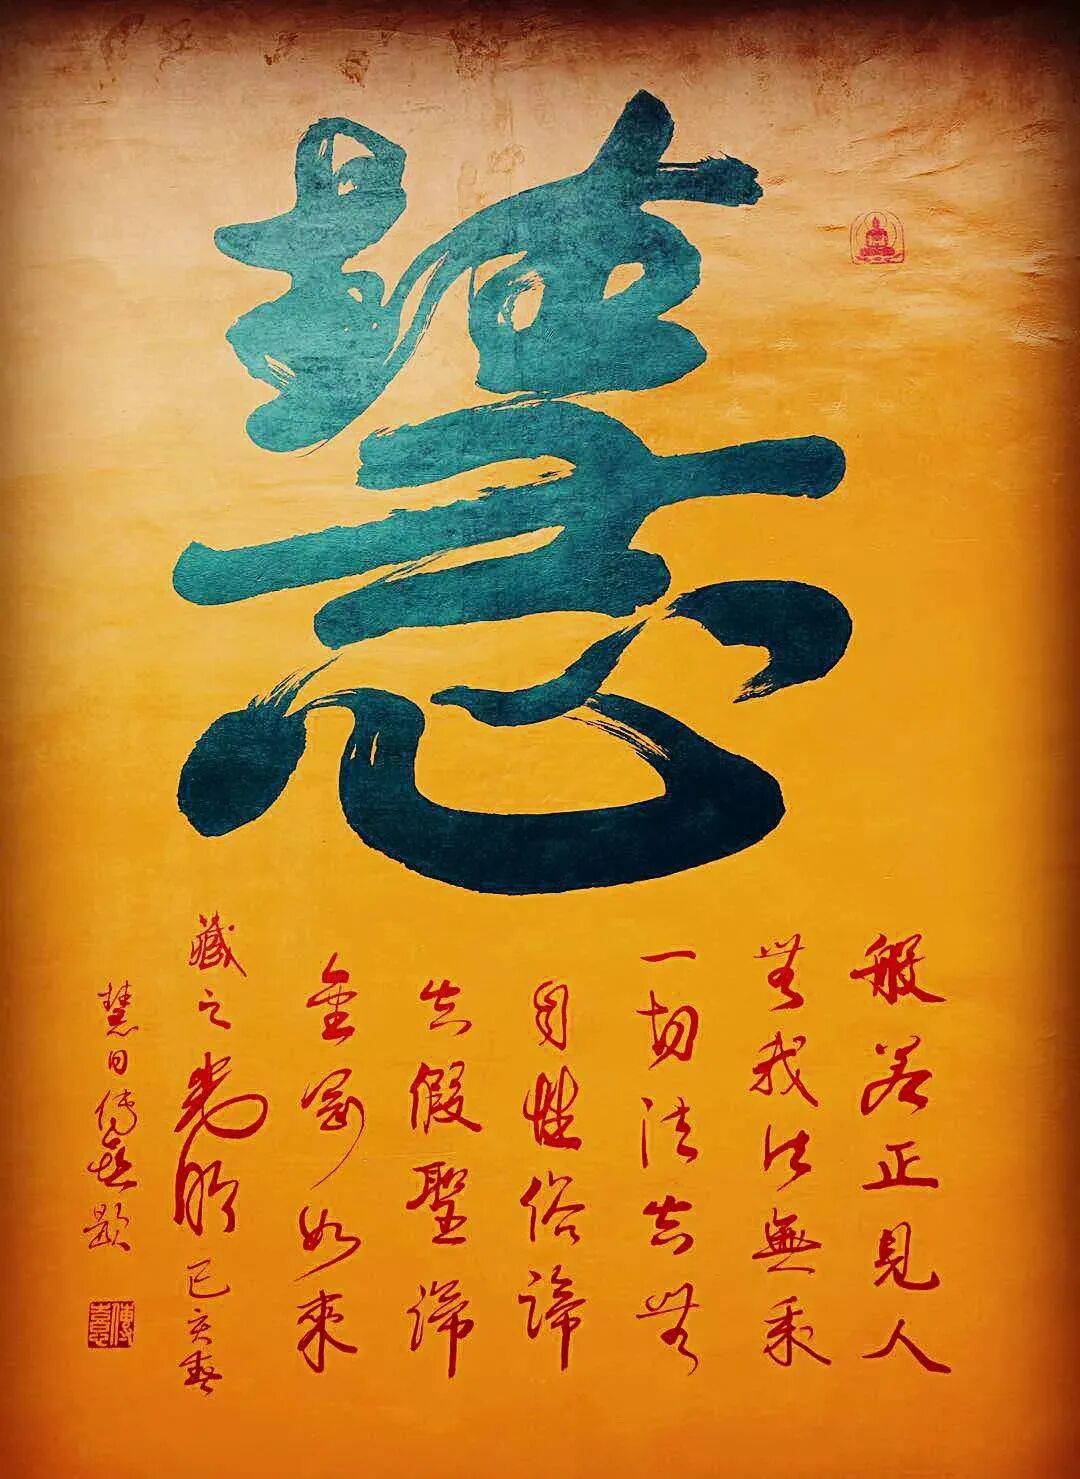 慧
般若正見人
無我法無我
一切法皆無
自性俗諦
皆假聖諦
金剛如來
藏之光明己亥春
慧日傳喜題
傳喜